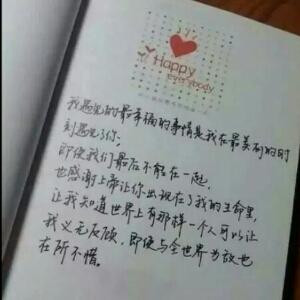 Happy
everybody
我遇见的最幸福的事情是我在最美利的时
刻遇见了你，
即使我们最后不能在一起，
也感谢上帝让你出现在了我的生命里，
让我知道世界上有那样一个人可以让
我义无反顾，即使与全世界为敌也
在所不惜。